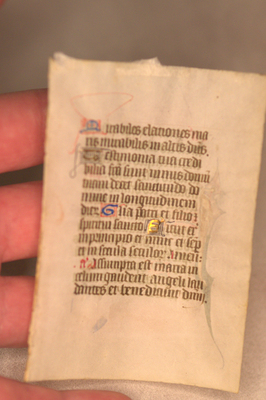 Mirabiles elationes ma
ris mirabilis in altis dñs,
Testimonia tua credi
bilia fcã sunt nimis domũ
tuam decet sanctitudo do
mine in longitudinem
dier. Glia patri et filio:
spiritui sancto. Sicut et
in principio et nunc et sep
et in secula seculor. Amen.
Assumpta est maria in
celum gaudent angeli lau
dantes et benedicunt dnm.